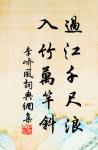 過江千尺浪
入竹萬竿斜
李嶠風詞典網集